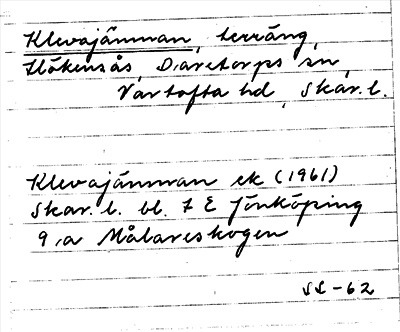 Klevajänman, terräng,
Hökensås, Daretorps sn,
Vartofta hd, Skar. l.
Klevajänman ek (1961)
Skar. l. bl. 7 E Jönköping
9, a Målareskogen
SL-62